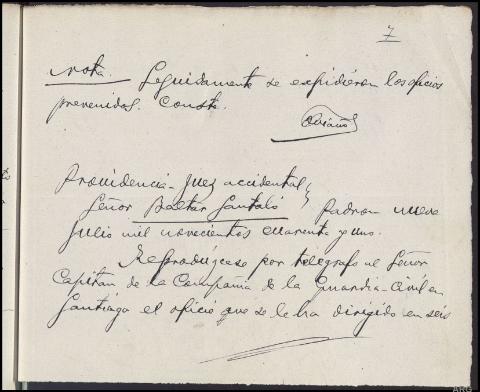 7
Nota. Seguidamente se expidieron los oficios
prevenidos. Consta.
Providencia - Juez accidental
Señor Baltar Santaló } Padron nueve
Julio mil novecientos cuarenta y uno.
Reprodúzcase por telégrafo al Señor
Capitán de la Compañía de la Guardia-Civil en
Santiago el oficio que se le ha dirigido en seis
ARG